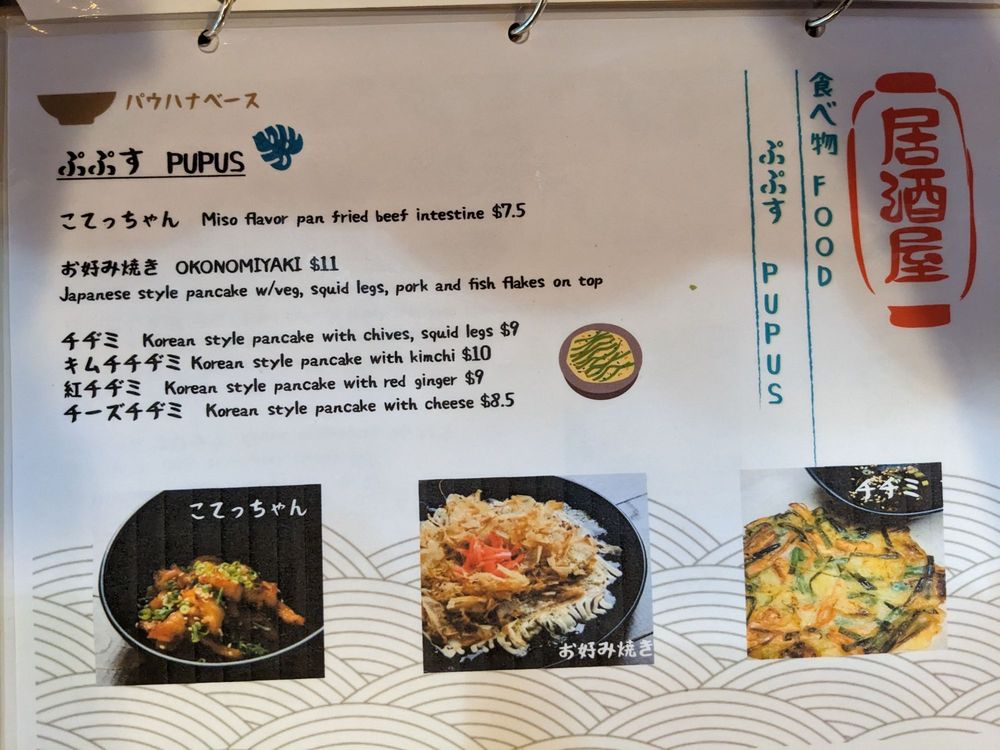 パウハナベース
ぷぷす PUPUS
こてっちゃん Miso flavor pan fried beef intestine $7.5
お好み焼き OKONOMIYAKI $11
Japanese style pancake w/veg, squid legs, pork and fish flakes on top
チヂミ Korean style pancake with chives, squid legs $9
キムチチヂミ Korean style pancake with kimchi $10
紅チヂミ Korean style pancake with red ginger $9
チーズチヂミ Korean style pancake with cheese $8.5
居酒屋
食べ物 FOOD
ぷぷす PUPUS
こてっちゃん
お好み焼き
チヂミ